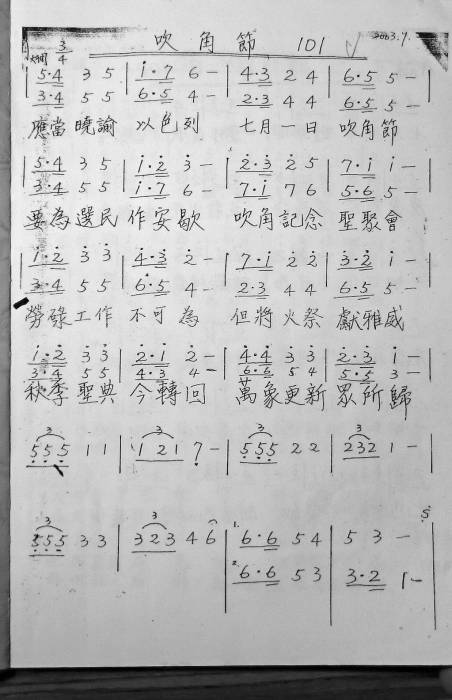 吹角節 101 2003.7.
大調 3/4
5·4 3 5 | 1·7 6 – | 4·3 2 4 | 6·5 5 – |
3·4 5 5 | 6·5 4 – | 2·3 4 4 | 6·5 5 – |
應當曉諭 以色列 七月一日 吹角節
5·4 3 5 | 1·2 3 – | 2·3 2 5 | 7·1 1 – |
3·4 5 5 | 1·7 6 – | 7·1 7 6 | 5·6 5 – |
要為選民 作安歇 吹角記念 聖聚會
1·2 3 3 | 4·3 2 – | 7·1 2 2 | 3·2 1 – |
3·4 5 5 | 6·5 4 – | 2·3 4 4 | 6·5 5 – |
勞碌工作 不可為 但將火祭 獻雅威
1·2 3 3 | 2·1 2 – | 4·4 3 3 | 2·3 1 – |
3·4 5 5 | 4·3 4 – | 6·6 5 4 | 5·5 3 – |
秋季聖典 今轉回 萬象更新 眾所歸
3 3 3 3
555 1 1 | 121 7 – | 555 2 2 | 232 1 – |
3 3
555 3 3 | 323 4 6 | 1. 6·6 5 4 | 5 3 – |
2. 6·6 5 3 | 3·2 1 –